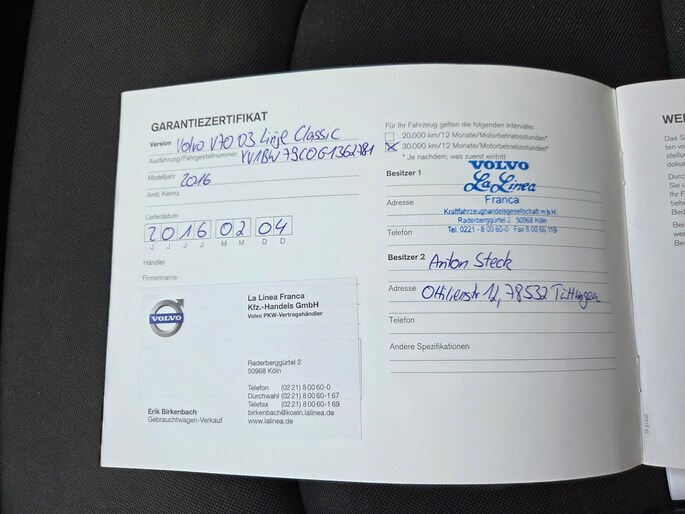 GARANTIEZERTIFIKAT
Version Volvo V70 D3 Linje Classic
Ausführung/Fahrgestellnummer YV1BW79C0G1362781
Modelljahr 2016
Amtl. Kennz.
Lieferdatum
2 0 1 6 0 2 0 4
J J J J M M D D
Händler
Firmenname
VOLVO
La Linea Franca
Kfz.-Handels GmbH
Volvo PKW-Vertragshändler
Raderberggürtel 2
50968 Köln
Telefon (02 21) 8 00 60-0
Durchwahl (02 21) 8 00 60-1 67
Telefax (02 21) 8 00 60-1 69
birkenbach@koeln.lalinea.de
www.lalinea.de
Erik Birkenbach
Gebrauchtwagen-Verkauf
Für Ihr Fahrzeug gelten die folgenden Intervalle:
20.000 km/12 Monate/Motorbetriebsstunden*
30.000 km/12 Monate/Motorbetriebsstunden*
* Je nachdem, was zuerst eintritt
Besitzer 1
VOLVO
La Linea
Franca
Adresse
Kraftfahrzeughandelsgesellschaft m.b.H.
Raderberggürtel 2 50968 Köln
Telefon
Tel. 0221 - 8 00 60-0 Fax 8 00 60 119
Besitzer 2 Anton Steck
Adresse Ottilienstr 12, 78532 Tuttlingen
Telefon
Andere Spezifikationen